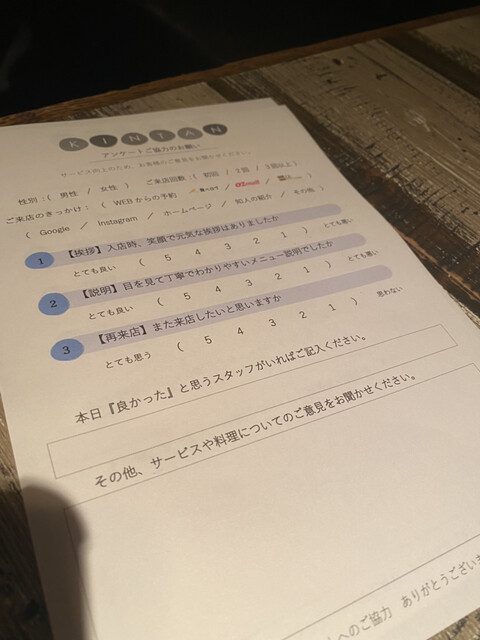 KINTAN
アンケートご協力のお願い
サービス向上のため、お客様のご意見をお聞かせください。
性別：（ 男性 / 女性 ） ご来店回数（ 初回 / 2回 / 3回以上 ）
ご来店のきっかけ：（ WEBからの予約 食べログ /
（ Google / Instagram / ホームページ / 知人の紹介 / その他 ）
1 【挨拶】入店時、笑顔で元気な挨拶はありましたか
とても良い （ 5 4 3 2 1 ） とても悪い
2 【説明】目を見て丁寧でわかりやすいメニュー説明でしたか
とても良い （ 5 4 3 2 1 ） とても悪い
3 【再来店】また来店したいと思いますか
とても思う （ 5 4 3 2 1 ） 思わない
本日『良かった』と思うスタッフがいればご記入ください。
その他、サービスや料理についてのご意見をお聞かせください。
へのご協力 ありがとうございま